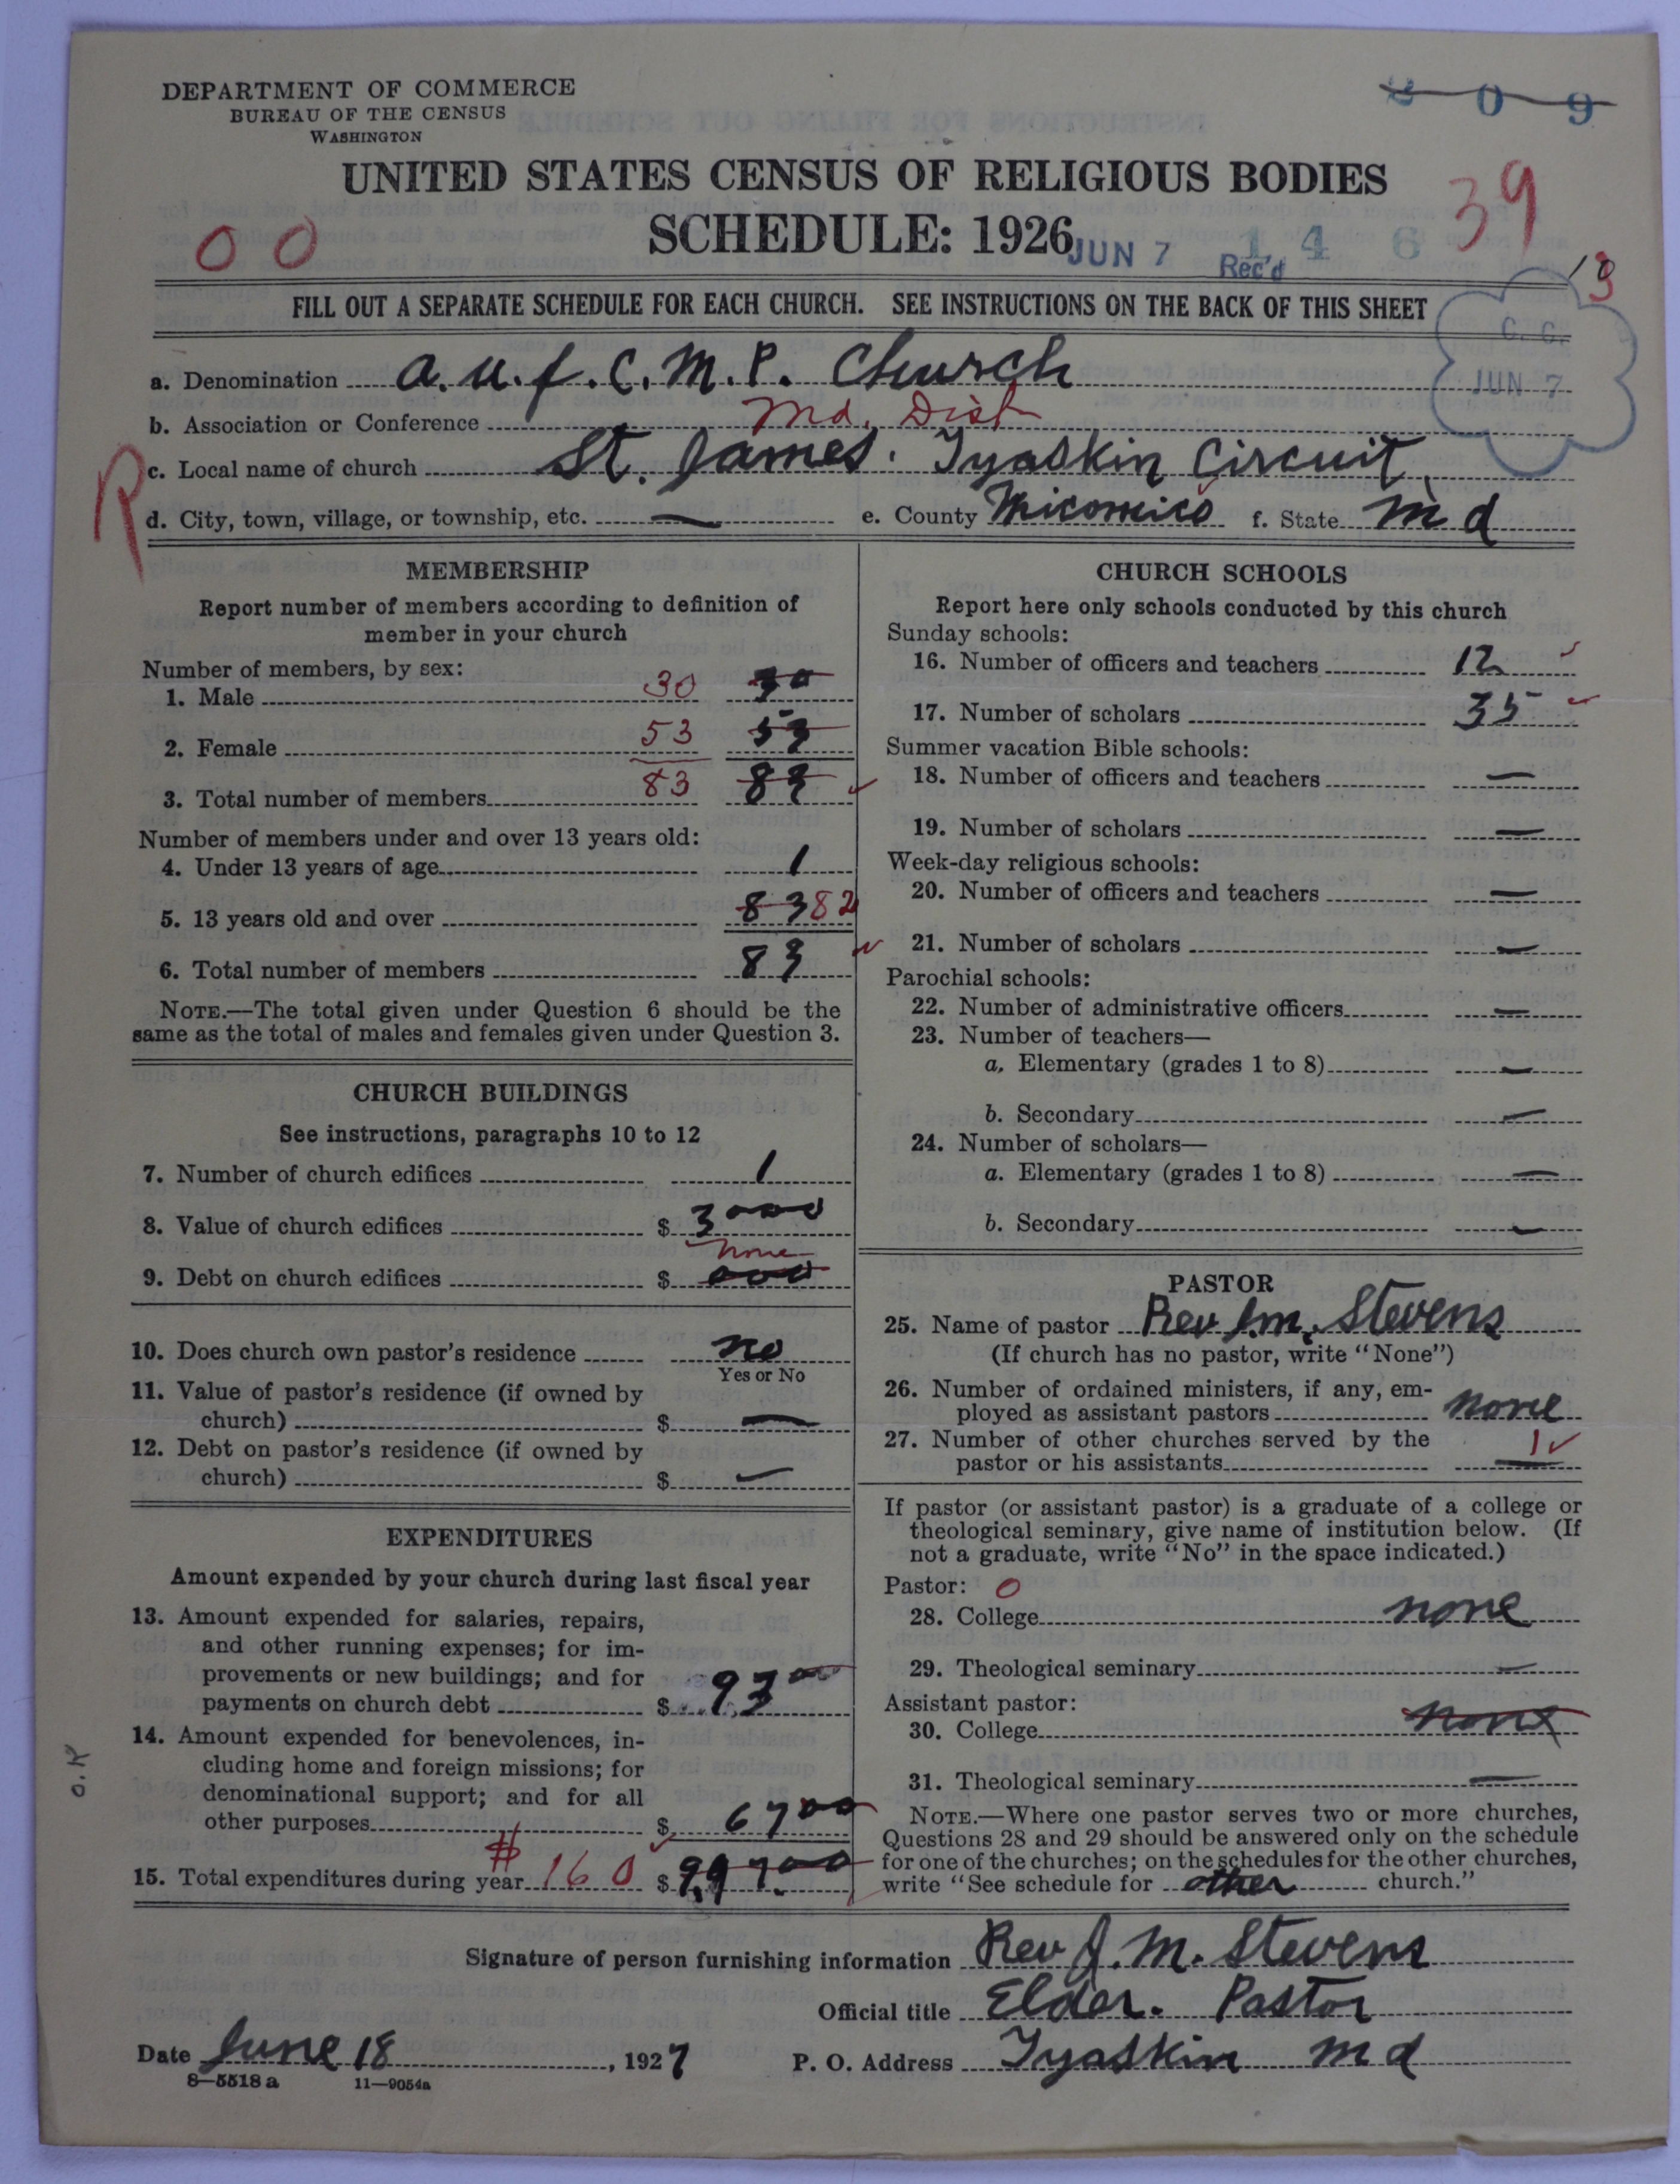 DEPARTMENT OF COMMERCE
BUREAU OF THE CENSUS
WASHINGTON
2 0 9
UNITED STATES CENSUS OF RELIGIOUS BODIES
SCHEDULE: 1926
39
0 0
JUN 7 Rec'd 1 4 6
FILL OUT A SEPARATE SCHEDULE FOR EACH CHURCH. SEE INSTRUCTIONS ON THE BACK OF THIS SHEET
C. C.
JUN 7
a. Denomination A. U. F. C. M. P. Church
b. Association or Conference Md. Dist
R
c. Local name of church St. James. Tyaskin Circuit
d. City, town, village, or township, etc. — e. County Wicomico f. State Md
MEMBERSHIP
Report number of members according to definition of
member in your church
Number of members, by sex:
1. Male 30 30
2. Female 53 53
3. Total number of members 83 83
Number of members under and over 13 years old:
4. Under 13 years of age 1
5. 13 years old and over 83 82
6. Total number of members 83
NOTE.—The total given under Question 6 should be the
same as the total of males and females given under Question 3.
CHURCH BUILDINGS
See instructions, paragraphs 10 to 12
7. Number of church edifices 1
8. Value of church edifices $ 3000
none
9. Debt on church edifices $ 000
10. Does church own pastor's residence no
Yes or No
11. Value of pastor's residence (if owned by
church) $ —
12. Debt on pastor's residence (if owned by
church) $ —
EXPENDITURES
Amount expended by your church during last fiscal year
13. Amount expended for salaries, repairs,
and other running expenses; for im-
provements or new buildings; and for
payments on church debt $ 93 00
14. Amount expended for benevolences, in-
cluding home and foreign missions; for
denominational support; and for all
other purposes $ 67 00
15. Total expenditures during year # 160 $
O.K
CHURCH SCHOOLS
Report here only schools conducted by this church
Sunday schools:
16. Number of officers and teachers 12
17. Number of scholars 35
Summer vacation Bible schools:
18. Number of officers and teachers —
19. Number of scholars —
Week-day religious schools:
20. Number of officers and teachers —
21. Number of scholars —
Parochial schools:
22. Number of administrative officers —
23. Number of teachers—
a. Elementary (grades 1 to 8) —
b. Secondary —
24. Number of scholars—
a. Elementary (grades 1 to 8) —
b. Secondary —
PASTOR
25. Name of pastor Rev J. M. Stevens
(If church has no pastor, write "None")
26. Number of ordained ministers, if any, em-
ployed as assistant pastors none
27. Number of other churches served by the
pastor or his assistants 1
If pastor (or assistant pastor) is a graduate of a college or
theological seminary, give name of institution below. (If
not a graduate, write "No" in the space indicated.)
Pastor: 0
28. College none
29. Theological seminary —
Assistant pastor:
30. College none
31. Theological seminary —
NOTE.—Where one pastor serves two or more churches,
Questions 28 and 29 should be answered only on the schedule
for one of the churches; on the schedules for the other churches,
write "See schedule for other church."
Signature of person furnishing information Rev J. M. Stevens
Official title Elder. Pastor
Date June 18, 1927 P. O. Address Tyaskin Md
8—5518 a 11—9054a